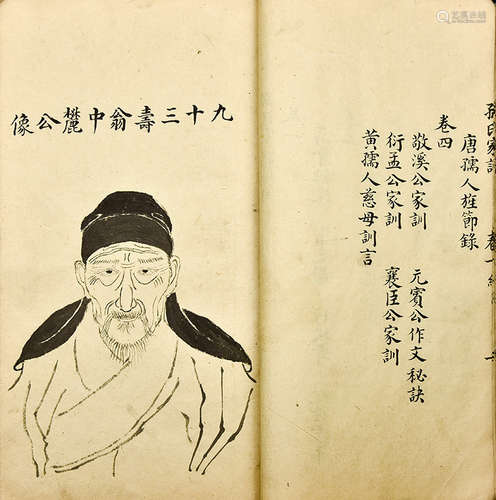 孫氏家訓
唐孺人旌節錄
卷四
敬溪公家訓 元賓公作文秘訣
衍孟公家訓 襄臣公家訓
黃孺人慈母訓言
九十三壽翁中麓公像